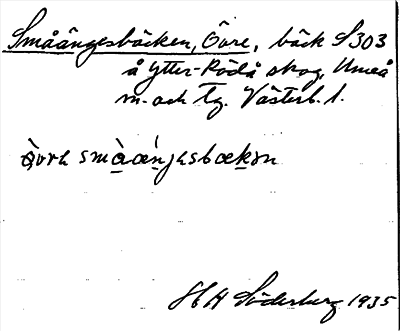 Småängesbäcken, Övre, bäck S303
å Ytter-Rödå skog, Umeå
m. och tg. Västerb. l.
smàæńgɩsbækən
H H Söderberg 1935